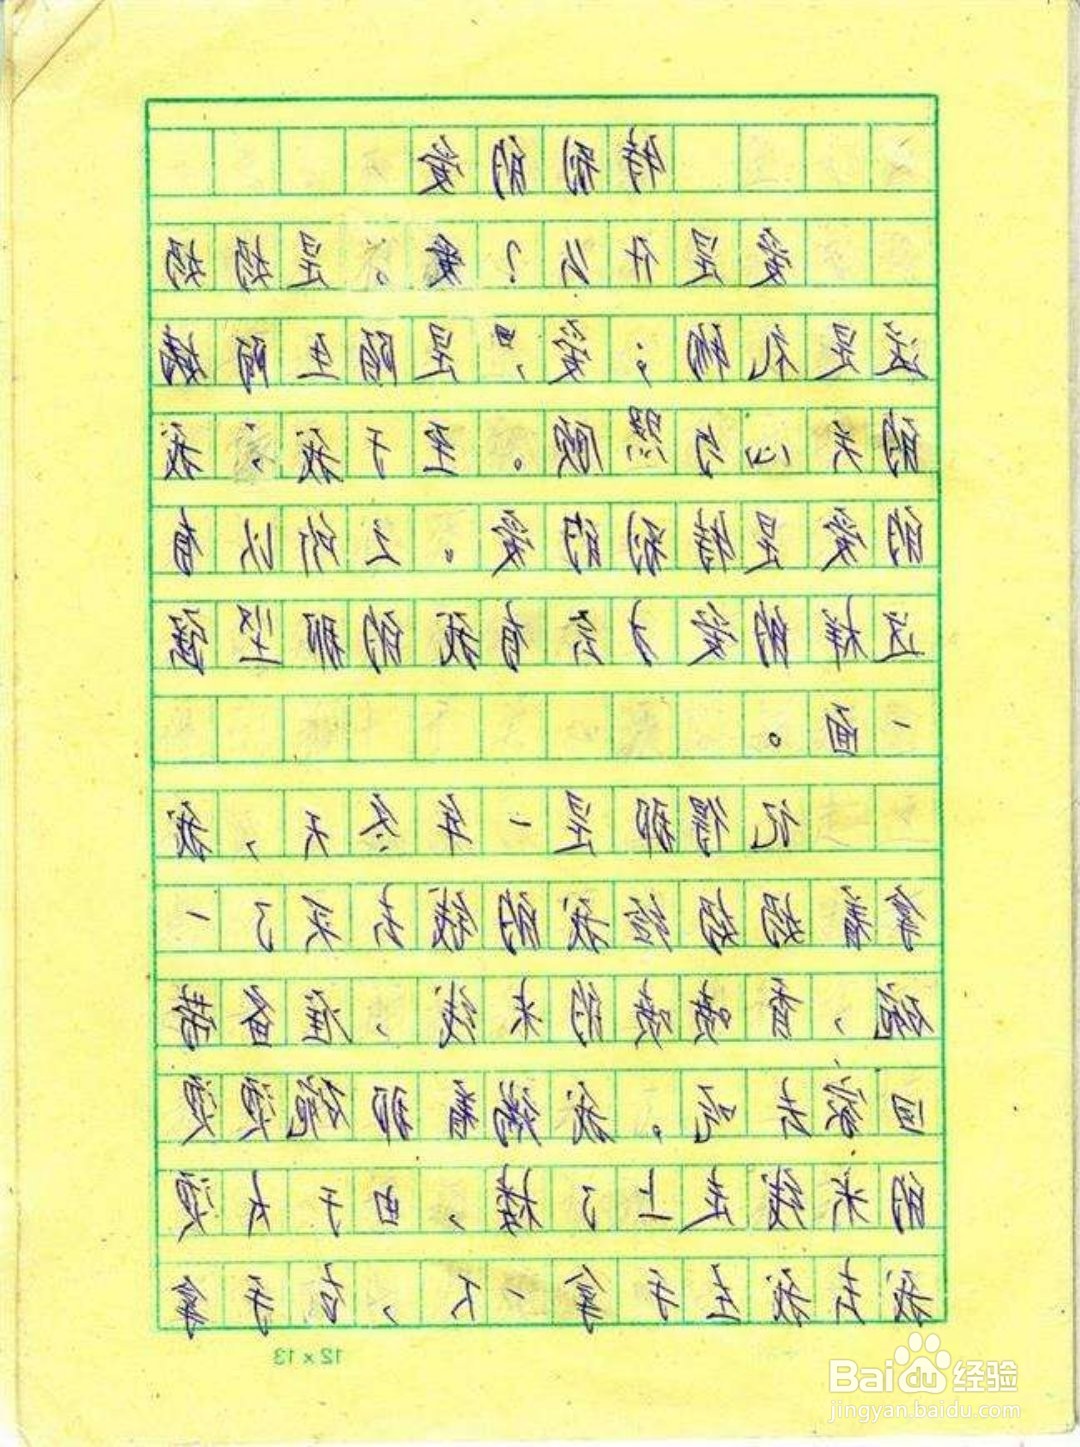 特别的爱
爱是什么?爱。是妈妈
是礼物;爱,是陌生陌
的关心与照顾。至于我,我
的爱是特别的爱。之所以有
这样的爱才会有我的那坚强
一面。
记得那是一年冬天,我
拿着妈妈给我的钱去买了一
碗,香的米线,准备带
回家去吃。我端着那碗烫烫
的米线走上了楼,由于太烫
我左手拿一下,右手拿
12 x 13
Baidu经验
jingyan.baidu.com